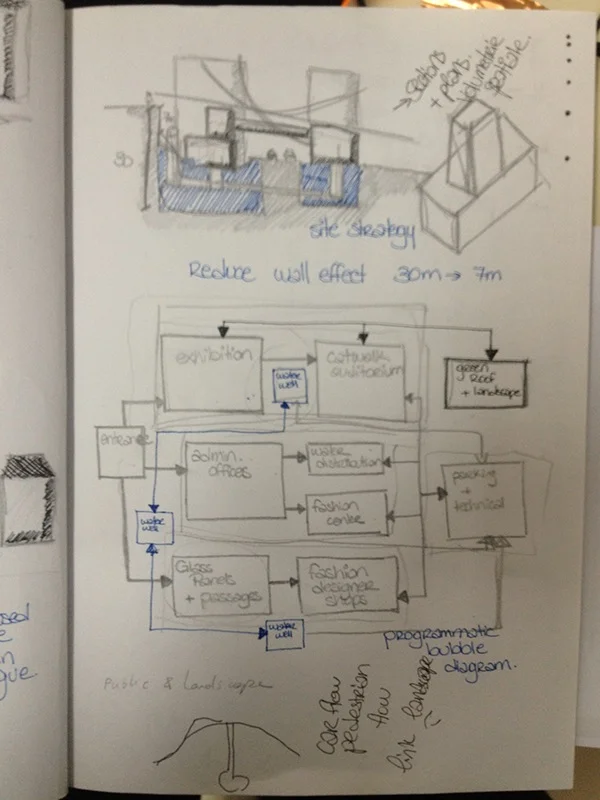 → Sections
+ plans.
volumetric
30
site strategy
Reduce wall effect 30m → 7m
exhibition
catwalk
auditorium
water
well
green
Roof
+ landscape
entrance
admin.
offices
water
distillation
parking
+
technical
fashion
centre
water
well
Glass
Panels
+ passages
fashion
designer
shops
water
well
programmatic
bubble
diagram.
Public & landscape
car flow
pedestrian
flow
link landscape